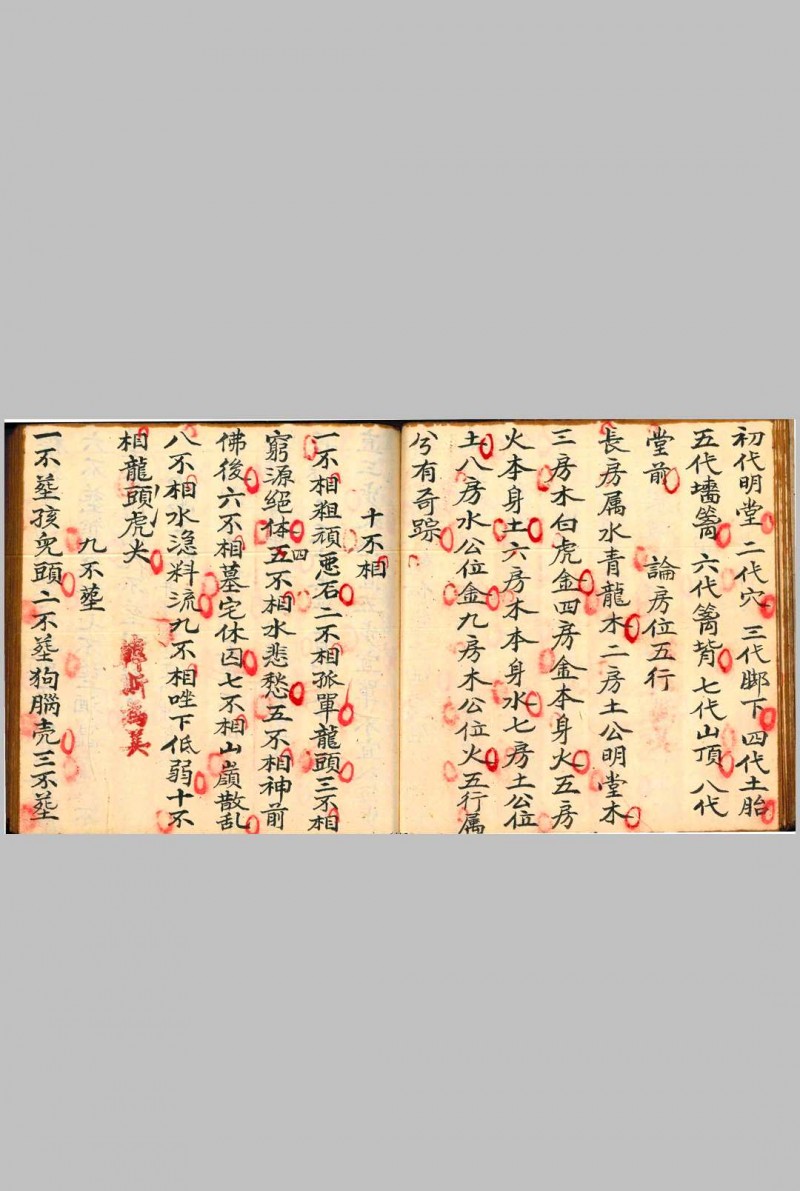 初代明堂 二代穴 三代脚下 四代土胎
五代墻篱 六代篱背 七代山頂 八代
堂前 論房位五行
長房属水青龍木二房土公明堂木
三房木白虎金四房金本身火五房
火本身土六房木本身水七房土公位
土八房水公位金九房木公位火五行属
兮有奇踪
十不相
一不相粗頑悪石二不相孤單龍頭三不相
窮源絕体四五不相水悲愁五不相神前
佛後六不相墓宅休囚七不相山嶺散乱
八不相水漒料流九不相唑下低弱十不
相龍頭虎尖
九不塟
一不塟孩兒頭二不塟狗腦壳三不塟